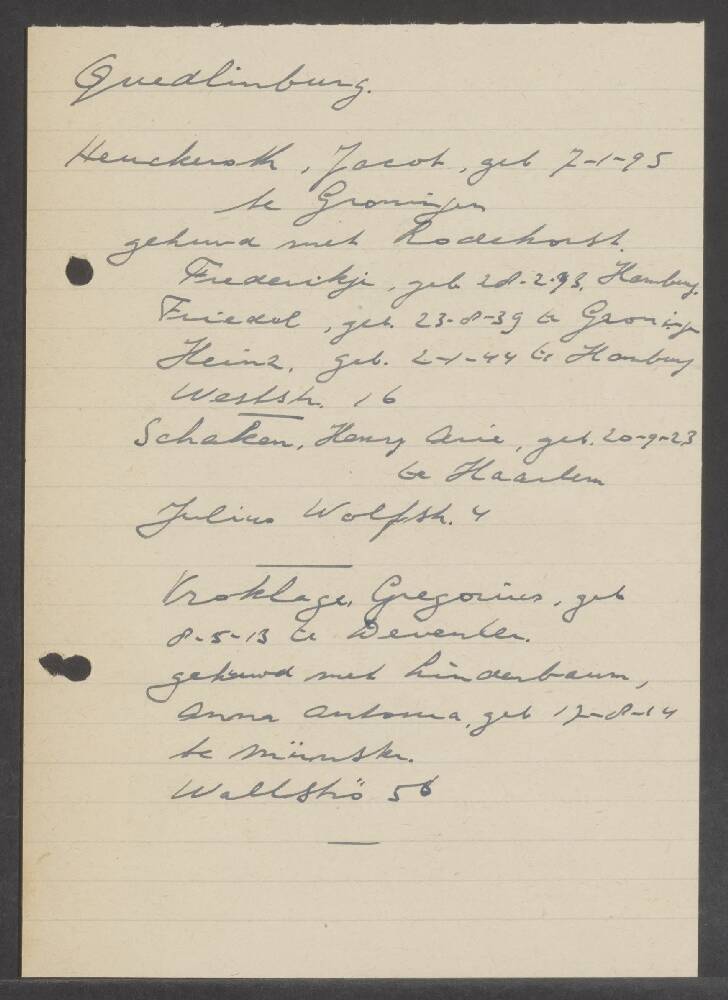 Quedlinburg.
Henckeroth, Jacob, geb 7-1-95
te Groningen
gehuwd met Rodehorst.
Frederikje, geb. 28-2-93, Hamburg.
Friedel, geb. 23-8-39 te Groningen
Heinz, geb. 2-1-44 te Hamburg
Weststr. 16
Schaken, Henry Arie, geb. 20-9-23
te Haarlem
Julius Wolfstr. 4
Vroklage, Gregorius, geb
8-5-13 te Deventer.
gehuwd met Linderbaum,
Anna Antonia, geb 17-8-14
te Münster.
Wallstr. 56